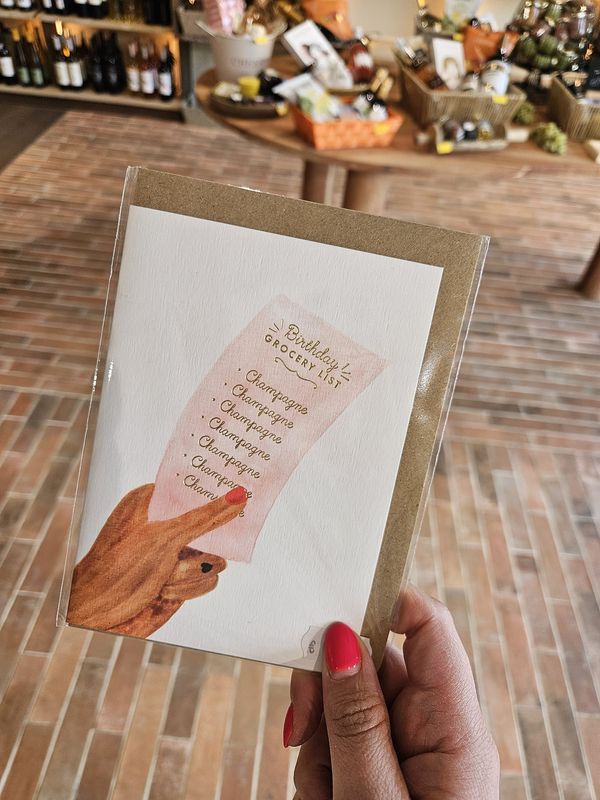 Birthday!
GROCERY LIST
· Champagne
· Champagne
· Champagne
· Champagne
· Champagne
· Champagne
· Cham e